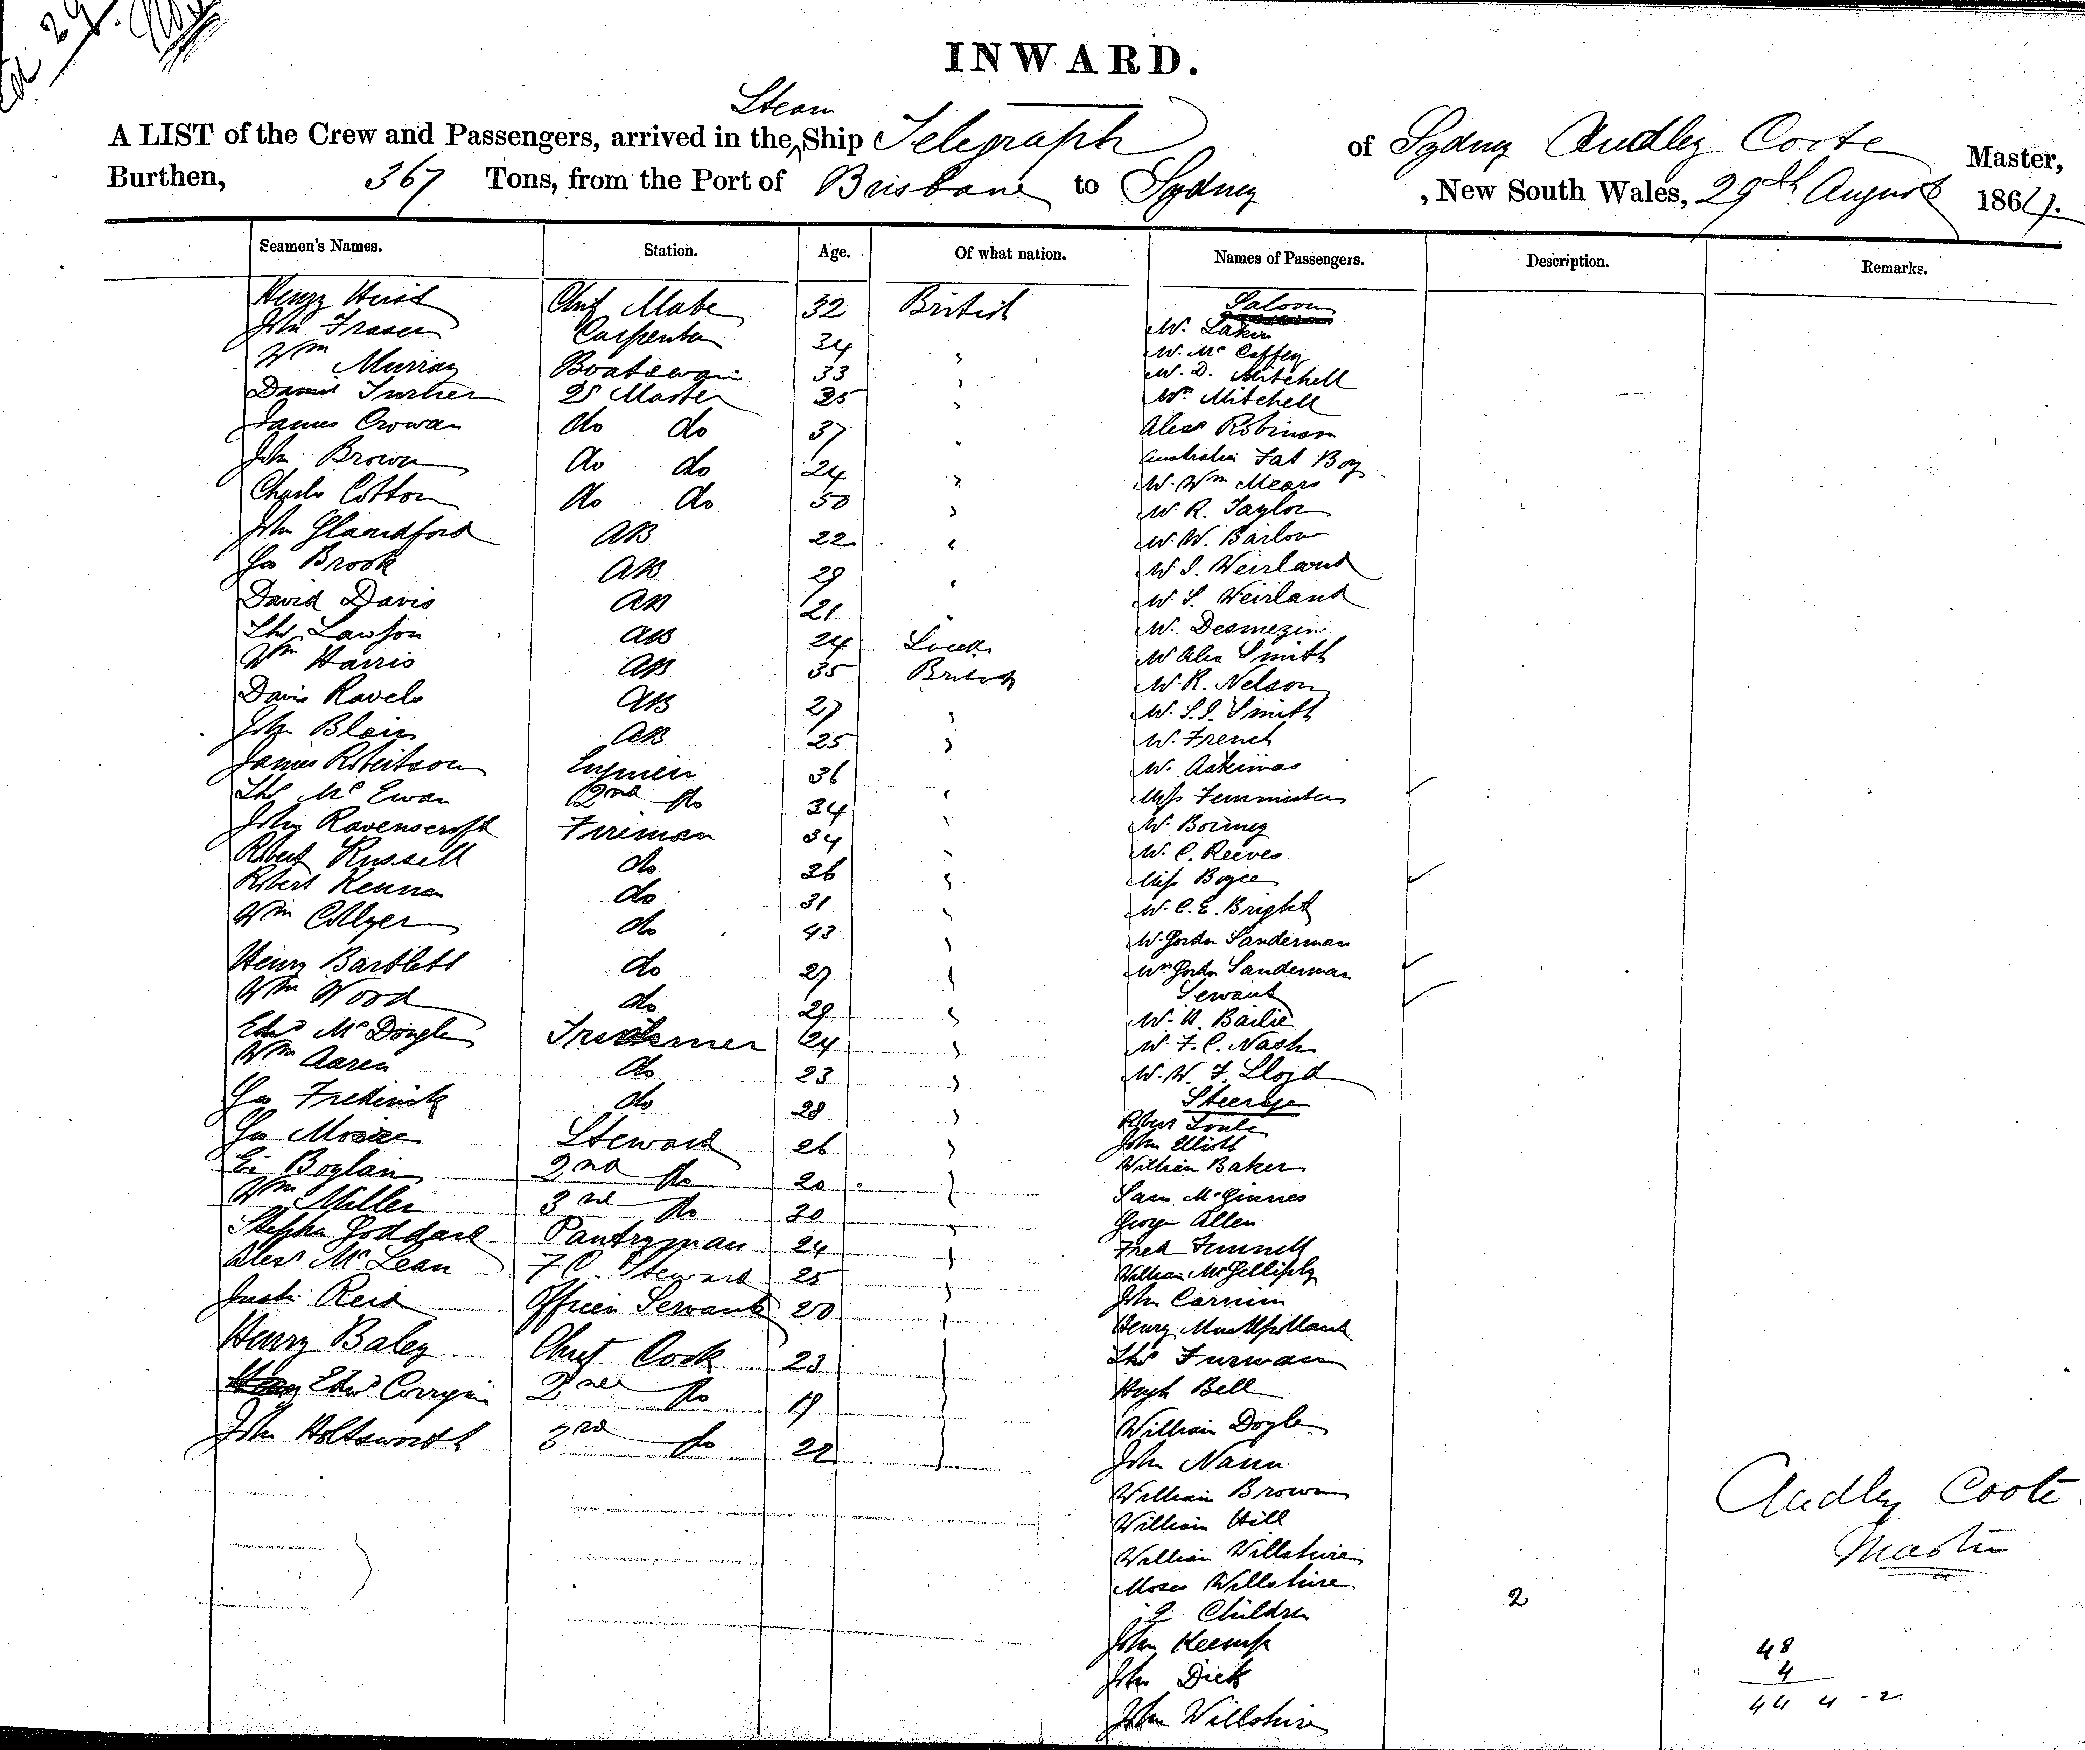 INWARD.
Steam
A LIST of the Crew and Passengers, arrived in the ^ Ship Telegraph of Sydney Audley Coote Master,
Burthen, 367 Tons, from the Port of Brisbane to Sydney, New South Wales, 29th August 1864.
Seamen's Names. Station. Age. Of what nation. Names of Passengers. Description. Remarks.
Henry Hurst Chief Mate 32 British
John Fraser Carpenter 34 "
Wm Murray Boatswain 33 "
Daniel Turner Qr Master 35 "
James Crowan do do 37 "
John Brown do do 24 "
Charles Cotton do do 50 "
John Glandford AB 22 "
Geo Brook AB 29 "
David Davis AB 21 "
Thos Lawson AB 24
Wm Harris AB 35 British
Davis Ravels AB 27 "
John Blair AB 25 "
James Robertson Engineer 36 "
Thos McEwan 2nd do 34 "
John Ravenscroft Fireman 34 "
Robert Russell do 26 "
Robert Kennan do 31 "
Wm Collyer do 43 "
Henry Bartlett do 27 "
Wm Wood do 29 "
Edwd McDougle Trimmer 24 "
Wm Aaren do 23 "
Geo Frederick do 28 "
Geo Steward 26 "
Boylan 2nd do 20 "
Wm Miller 3rd do 30 "
Stephen Goddard Pantryman 24 "
Alexr McLean F C Steward 25 "
Reid Officers Servant 20 "
Henry Baley Chief Cook 23 "
Edwd Corrigin 2nd do 19 "
John Holtsworth 3rd do 22 "
Saloon
Mr Lakin
Mr McCaffey
Mr D. Mitchell
Mrs Mitchell
Alexr Robinson
Australian Fat Boy
Mr Wm Mears
Mr R. Taylor
Mr W. Barlow
Mr J. Weirland
Mr S. Weirland
Mr Desmezin
Mr Alex Smith
Mr R. Nelson
Mr S. J. Smith
Mr French
Mr Askimas
Miss
Mr Bourney
Mr C. Reeves
Miss Boyce
Mr C. E. Bright
Mr Gordon Sanderman
Mrs Gordon Sanderman
Servant
Mr A. Bailie
Mr F. C. Nash
Mr W. F. Lloyd
Steerage
Robert
John Elliott
William Baker
Sam McGinnes
George Allen
Fred Funnell
William
John
Henry
Thos Furwan
Hugh Bell
William Doyle
John Nann
William Brown
William Hill
William Willshire
Moses Willshire
2 Children 2
John Keemp
John Dick
John Willshire
Audley Coote
Master
48
4
44 4 - 2